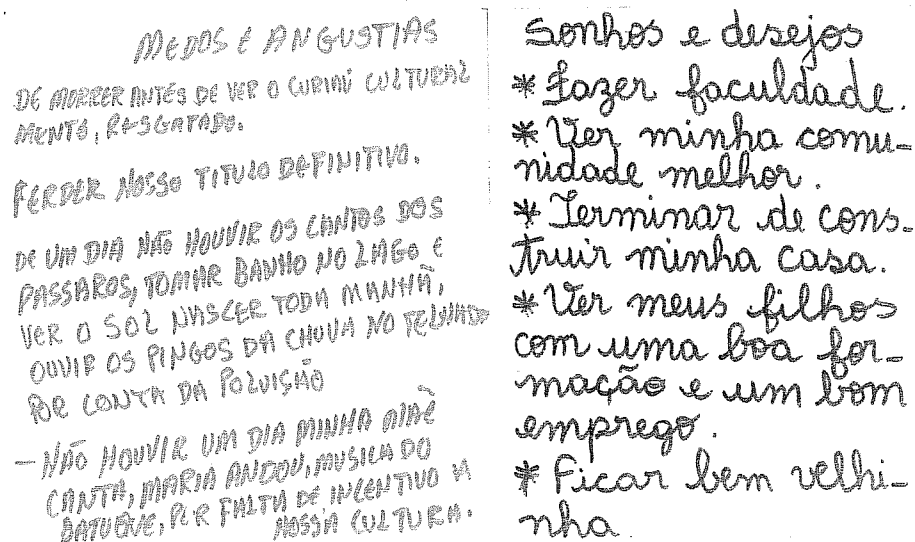 MEDOS E ANGUSTIAS
DE MORRER ANTES DE VER O CURIAÚ CULTURAL
MENTE, RESGATADO.
PERDER NOSSO TITULO DEFINITIVO.
DE UM DIA NÃO HOUVIR OS CANTOS DOS
PASSAROS, TOMAR BANHO NO LAGO E
VER O SOL NASCER TODA MANHÃ,
OUVIR OS PINGOS DA CHUVA NO TELHADO
POR CONTA DA POLUIÇÃO
— NÃO HOUVIR UM DIA MINHA MÃE
CANTA, MARIA ANDOU, MUSICA DO
BATUQUE, POR FALTA DE INCENTIVO A
NOSSA CULTURA.
Sonhos e desejos
* Fazer faculdade.
* Ver minha comu-
nidade melhor.
* Terminar de cons-
truir minha casa.
* Ver meus filhos
com uma boa for-
mação e um bom
emprego.
* Ficar bem velhi-
nha